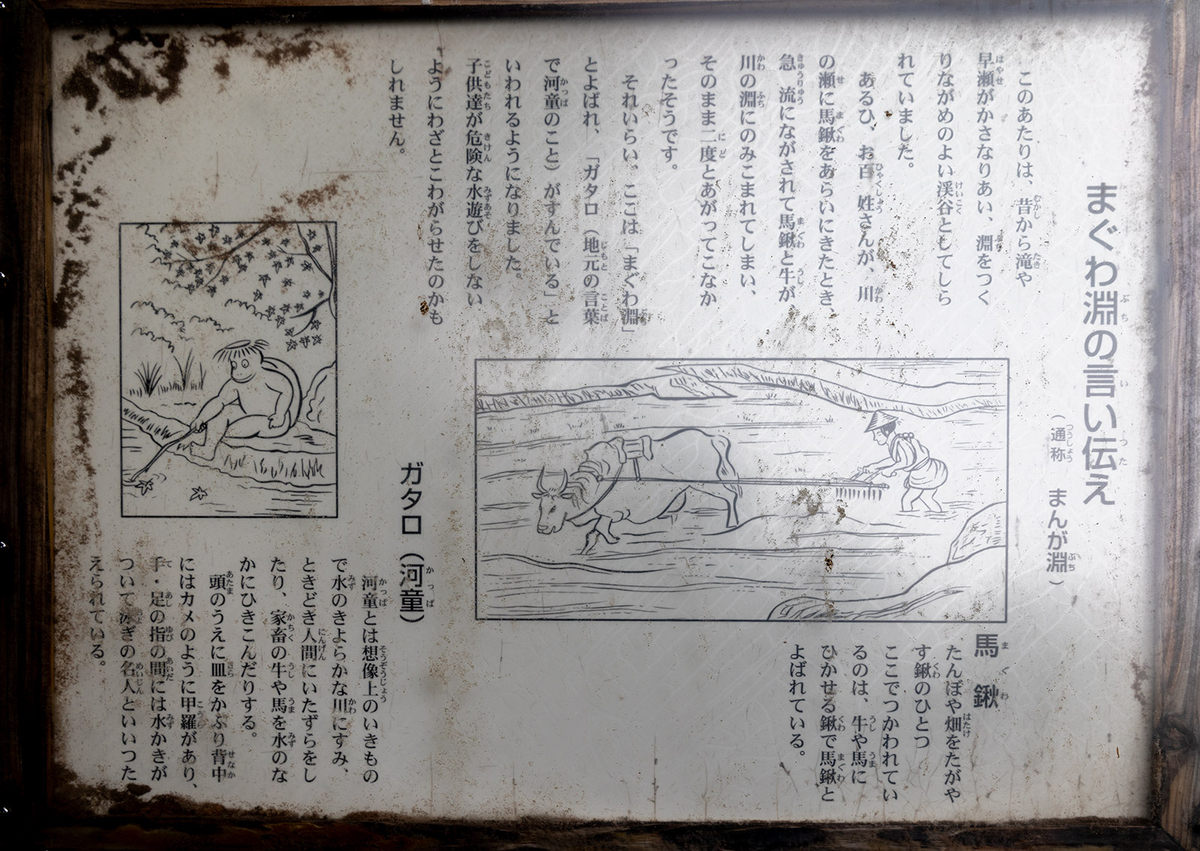 まぐわ淵の言い伝え
(通称 まんが淵)
このあたりは、昔から滝や
早瀬がかさなりあい、淵をつく
りながめのよい渓谷としてしら
れていました。
あるひ、お百姓さんが、川
の瀬に馬鍬をあらいにきたとき、
急流にながされて馬鍬と牛が、
川の淵にのみこまれてしまい、
そのまま二度とあがってこなか
ったそうです。
それいらい、ここは「まぐわ淵」
とよばれ、「ガタロ(地元の言葉
で河童のこと)がすんでいる」と
いわれるようになりました。
子供達が危険な水遊びをしない
ようにわざとこわがらせたのかも
しれません。
馬鍬
たんぼや畑をたがや
す鍬のひとつ
ここでつかわれてい
るのは、牛や馬に
ひかせる鍬で馬鍬と
よばれている。
ガタロ(河童)
河童とは想像上のいきもの
で水のきよらかな川にすみ、
ときどき人間にいたずらをし
たり、家畜の牛や馬を水のな
かにひきこんだりする。
頭のうえに皿をかぶり背中
にはカメのように甲羅があり、
手・足の指の間には水かきが
ついて泳ぎの名人といいつた
えられている。